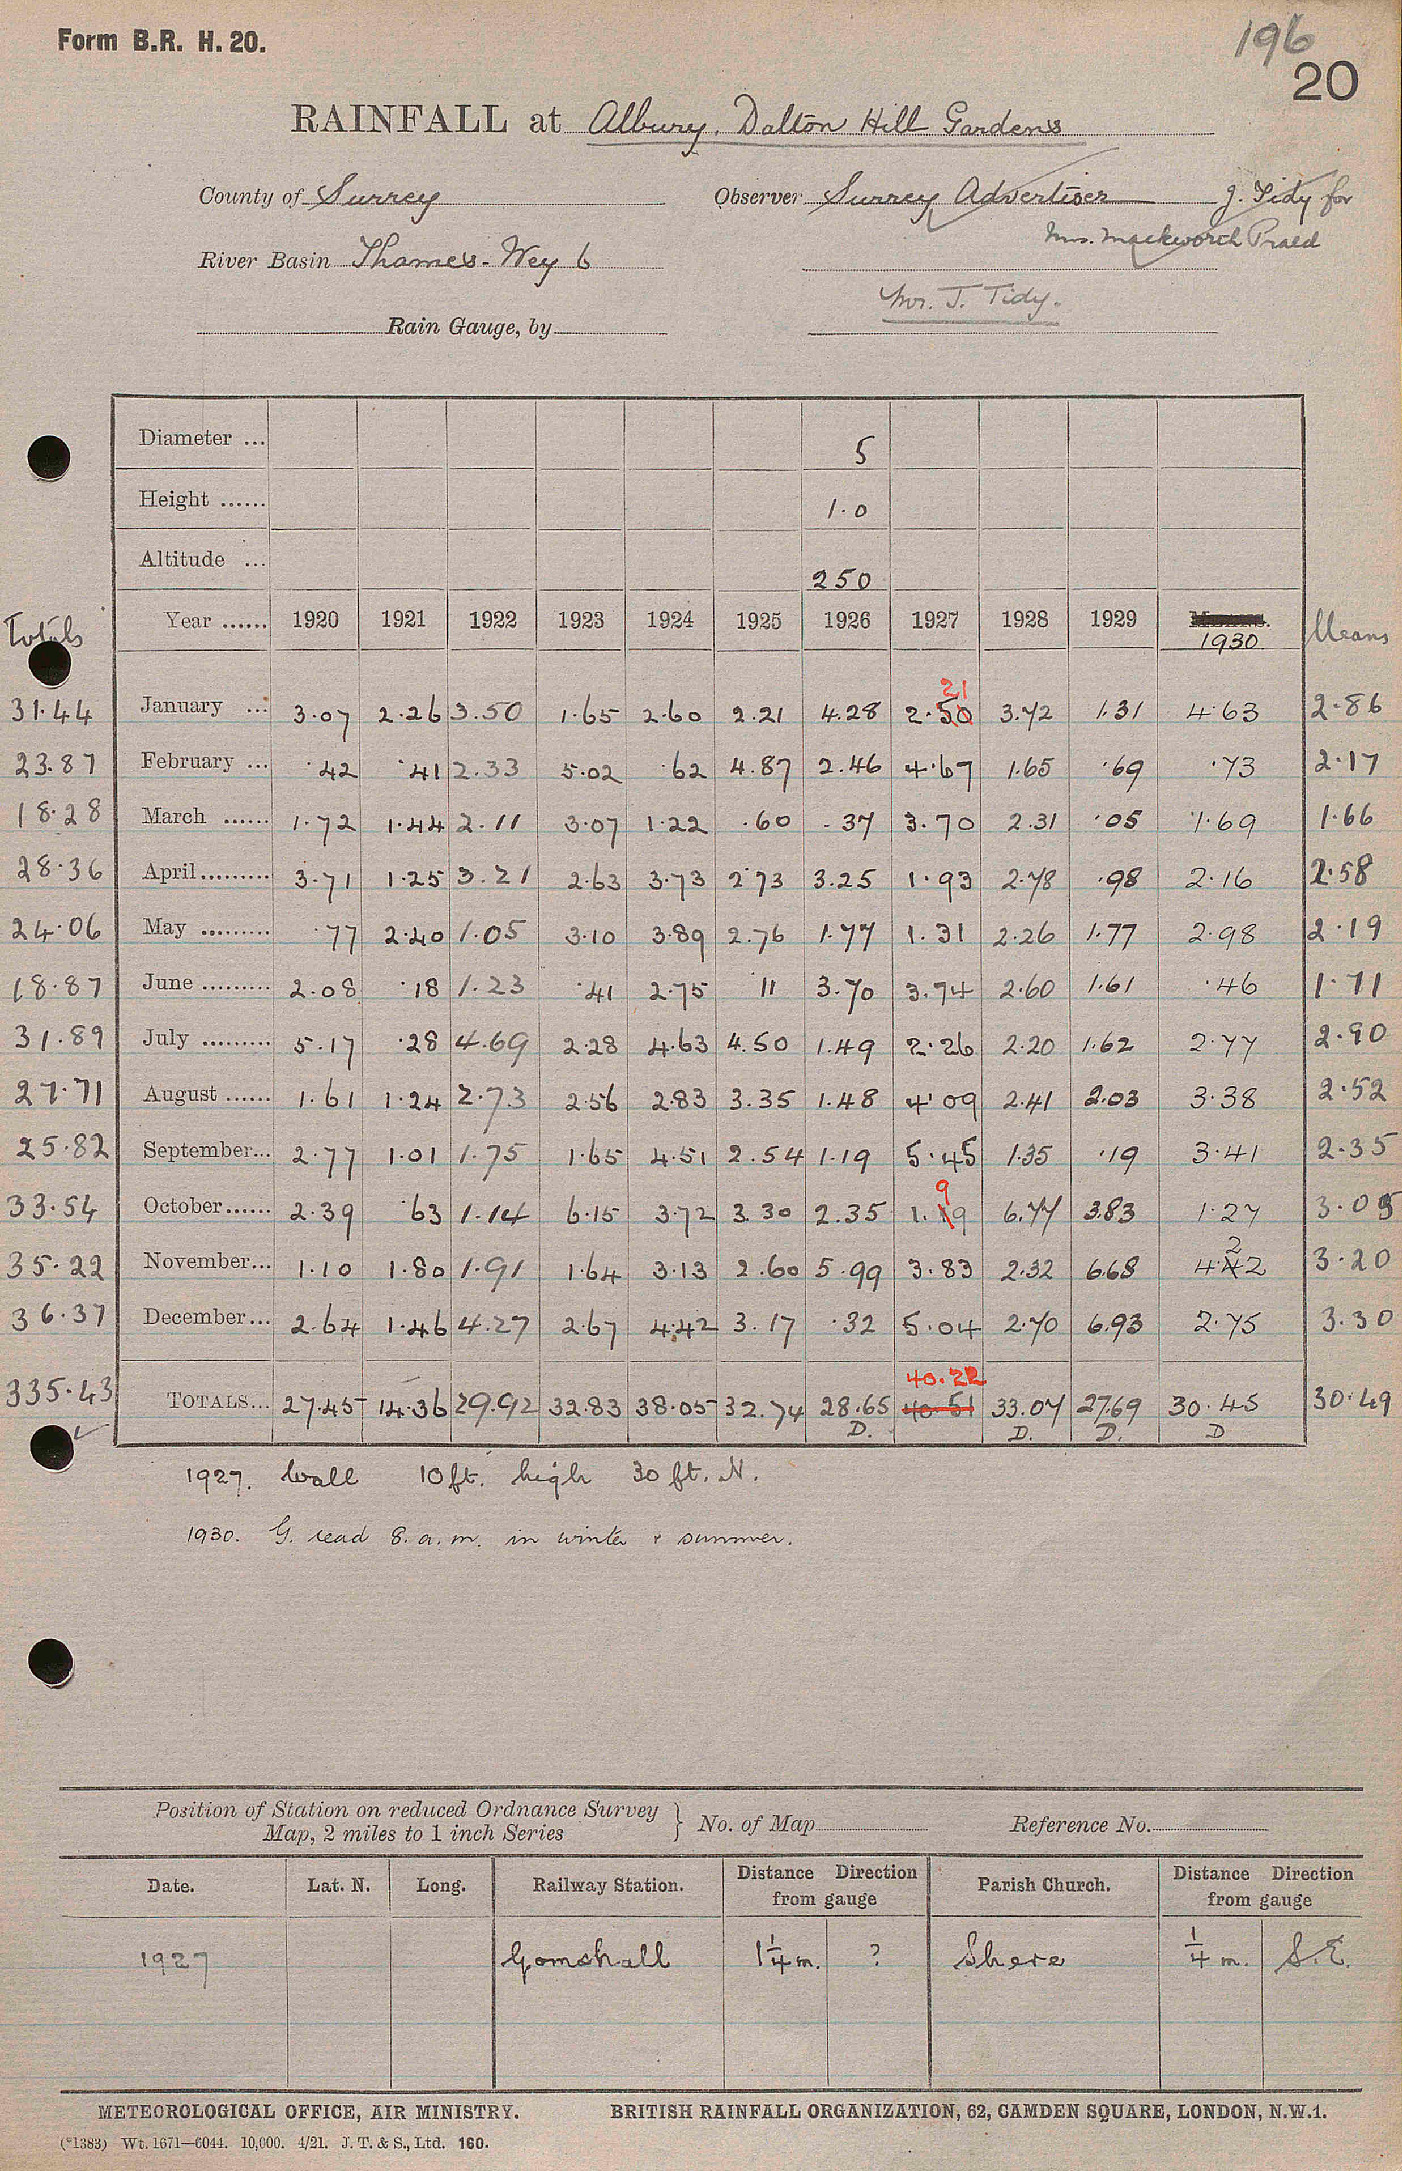 Form B.R. H. 20.
196
20
RAINFALL at Albury, Dalton Hill Gardens
County of Surrey Observer Surrey Advertiser J. Tidy for
Mrs. Mackworth Praed
River Basin Thames - Wey 6
Mr. J. Tidy.
Rain Gauge, by
Diameter ... 5
Height ...... 1.0
Altitude ... 250
Totals Year ...... 1920 1921 1922 1923 1924 1925 1926 1927 1928 1929 1930 Means
21
31.44 January ... 3.07 2.26 3.50 1.65 2.60 2.21 4.28 2.50 3.72 1.31 4.63 2.86
23.87 February ... .42 .41 2.33 5.02 .62 4.87 2.46 4.67 1.65 .69 .73 2.17
18.28 March ...... 1.72 1.44 2.11 3.07 1.22 .60 .37 3.70 2.31 .05 1.69 1.66
28.36 April......... 3.71 1.25 3.21 2.63 3.73 2.73 3.25 1.93 2.78 .98 2.16 2.58
24.06 May ......... .77 2.40 1.05 3.10 3.89 2.76 1.77 1.31 2.26 1.77 2.98 2.19
18.87 June ......... 2.08 .18 1.23 .41 2.75 11 3.70 3.74 2.60 1.61 .46 1.71
31.89 July ......... 5.17 .28 4.69 2.28 4.63 4.50 1.49 2.26 2.20 1.62 2.77 2.90
27.71 August ...... 1.61 1.24 2.73 2.56 2.83 3.35 1.48 4.09 2.41 2.03 3.38 2.52
25.82 September... 2.77 1.01 1.75 1.65 4.51 2.54 1.19 5.45 1.35 .19 3.41 2.35
9
33.54 October...... 2.39 .63 1.14 6.15 3.72 3.30 2.35 1.19 6.77 3.83 1.27 3.05
2
35.22 November... 1.10 1.80 1.91 1.64 3.13 2.60 5.99 3.83 2.32 6.68 4.42 3.20
36.37 December... 2.64 1.46 4.27 2.67 4.42 3.17 .32 5.04 2.70 6.93 2.75 3.30
40.22
335.43 TOTALS... 27.45 14.36 29.92 32.83 38.05 32.74 28.65 40.51 33.07 27.69 30.45 30.49
D. D. D. D
1927. Wall 10 ft. high 30 ft. N.
1930. G. read 8. a.m. in winter & summer.
Position of Station on reduced Ordnance Survey
Map, 2 miles to 1 inch Series } No. of Map Reference No.
Date. Lat. N. Long. Railway Station. Distance Direction from gauge Parish Church. Distance Direction from gauge
1927 Gomshall 1 1/4 m. ? Shere 1/4 m. S.E.
METEOROLOGICAL OFFICE, AIR MINISTRY. BRITISH RAINFALL ORGANIZATION, 62, CAMDEN SQUARE, LONDON, N.W.1.
(*1383) Wt. 1671—6044. 10,000. 4/21. J. T. & S., Ltd. 160.